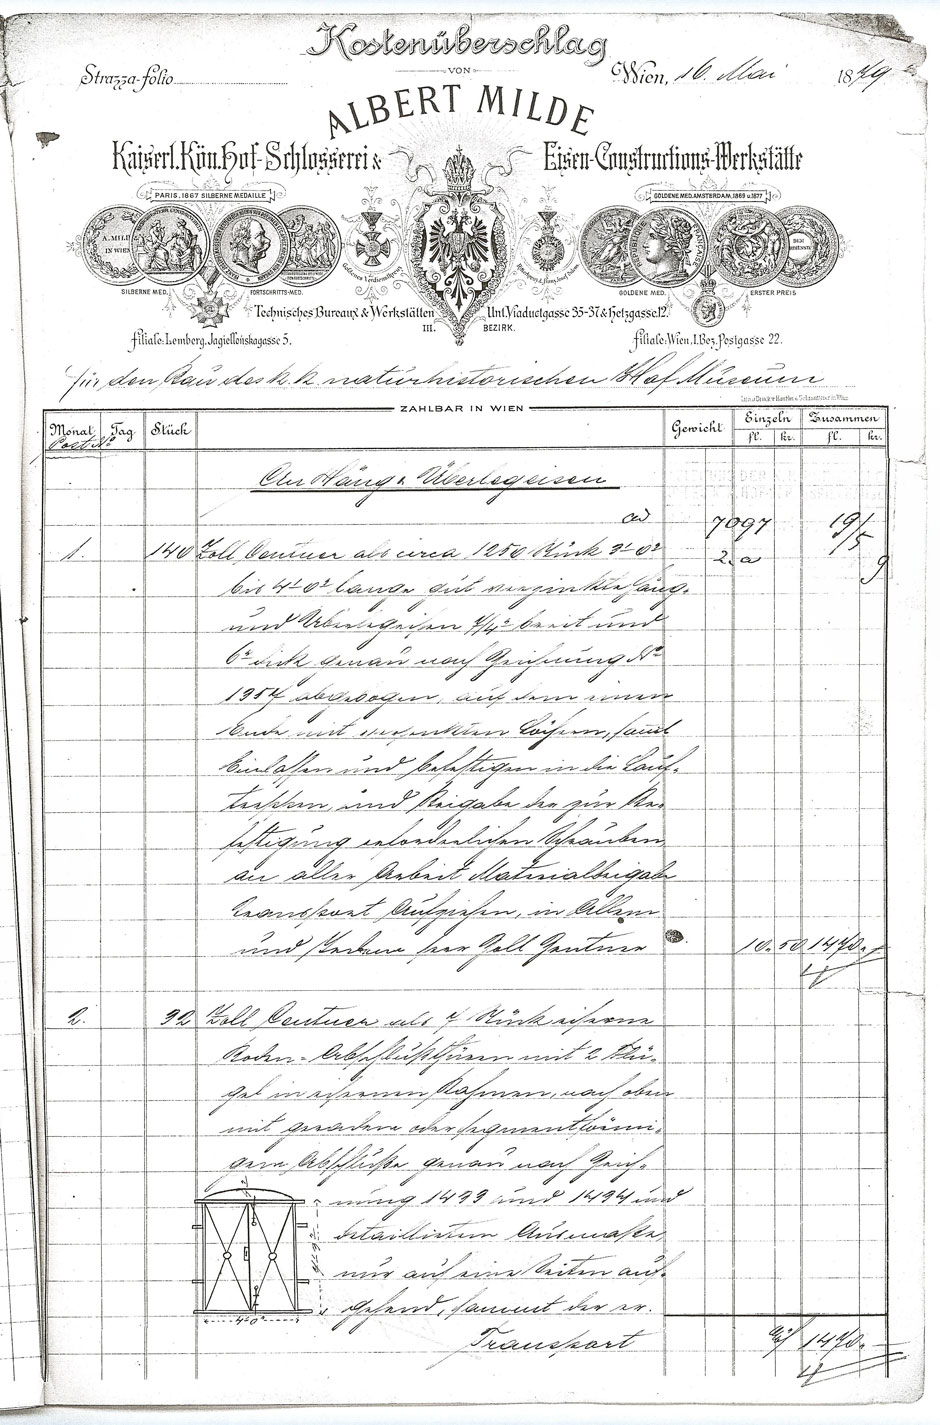 Kostenüberschlag
Strazza-folio
VON
Wien, 16. Mai 1879
ALBERT MILDE
Kaiserl. Kön. Hof-Schlosserei & Eisen-Constructions-Werkstätte
PARIS, 1867 SILBERNE MEDAILLE
GOLDENE MED. AMSTERDAM, 1869 u. 1877
A. MILDE IN WIEN
SILBERNE MED.
FORTSCHRITTS-MED.
GOLDENE MED.
ERSTER PREIS
Technisches Bureaux & Werkstätten Unt. Viaductgasse 35-37 & Hetzgasse 12.
III. BEZIRK.
Filiale: Lemberg, Jagiellońskagasse 5.
Filiale: Wien, I. Bez. Postgasse 22.
für den Bau des k. k. naturhistorischen Hof Museum
ZAHLBAR IN WIEN
Monat Tag Stück Gewicht Einzeln Zusammen
Post No fl. kr. fl. kr.
An Häng & Überlegeisen
ad 7097 19/5 9
1. 140 Zoll Centner als circa 1250 Stück 3' 0"
2. a
bis 4' 0" lange gut verzinkte Häng-
und Überlegeisen 7/4" breit und
6" dick genau nach Zeichnung No
1957 abgebogen, auf dem einen
Ende mit versenkten Löchern, samt
Einlassen und befestigen in die Lauf-
treppen, und Beigabe der zur Be-
festigung erforderlichen Schrauben
an aller Arbeit Materialbeigabe
Transport Aufziehen, in Allem
und Jedem per Zoll Centner 10. 50 1470.-
2. 32 Zoll Centner als 7 Stück eiserne
Boden-Abschlußthüren mit 2 Flü-
gel in eisernen Rahmen, nach oben
mit geradem oder segmentförmi-
gem Abschluße genau nach Zeich-
nung 1493 und 1494 und
detaillirtem Ausmaße
nur auf eine Seiten auf-
gehend, sammt der er-
4' 0"
Transport 1470.-